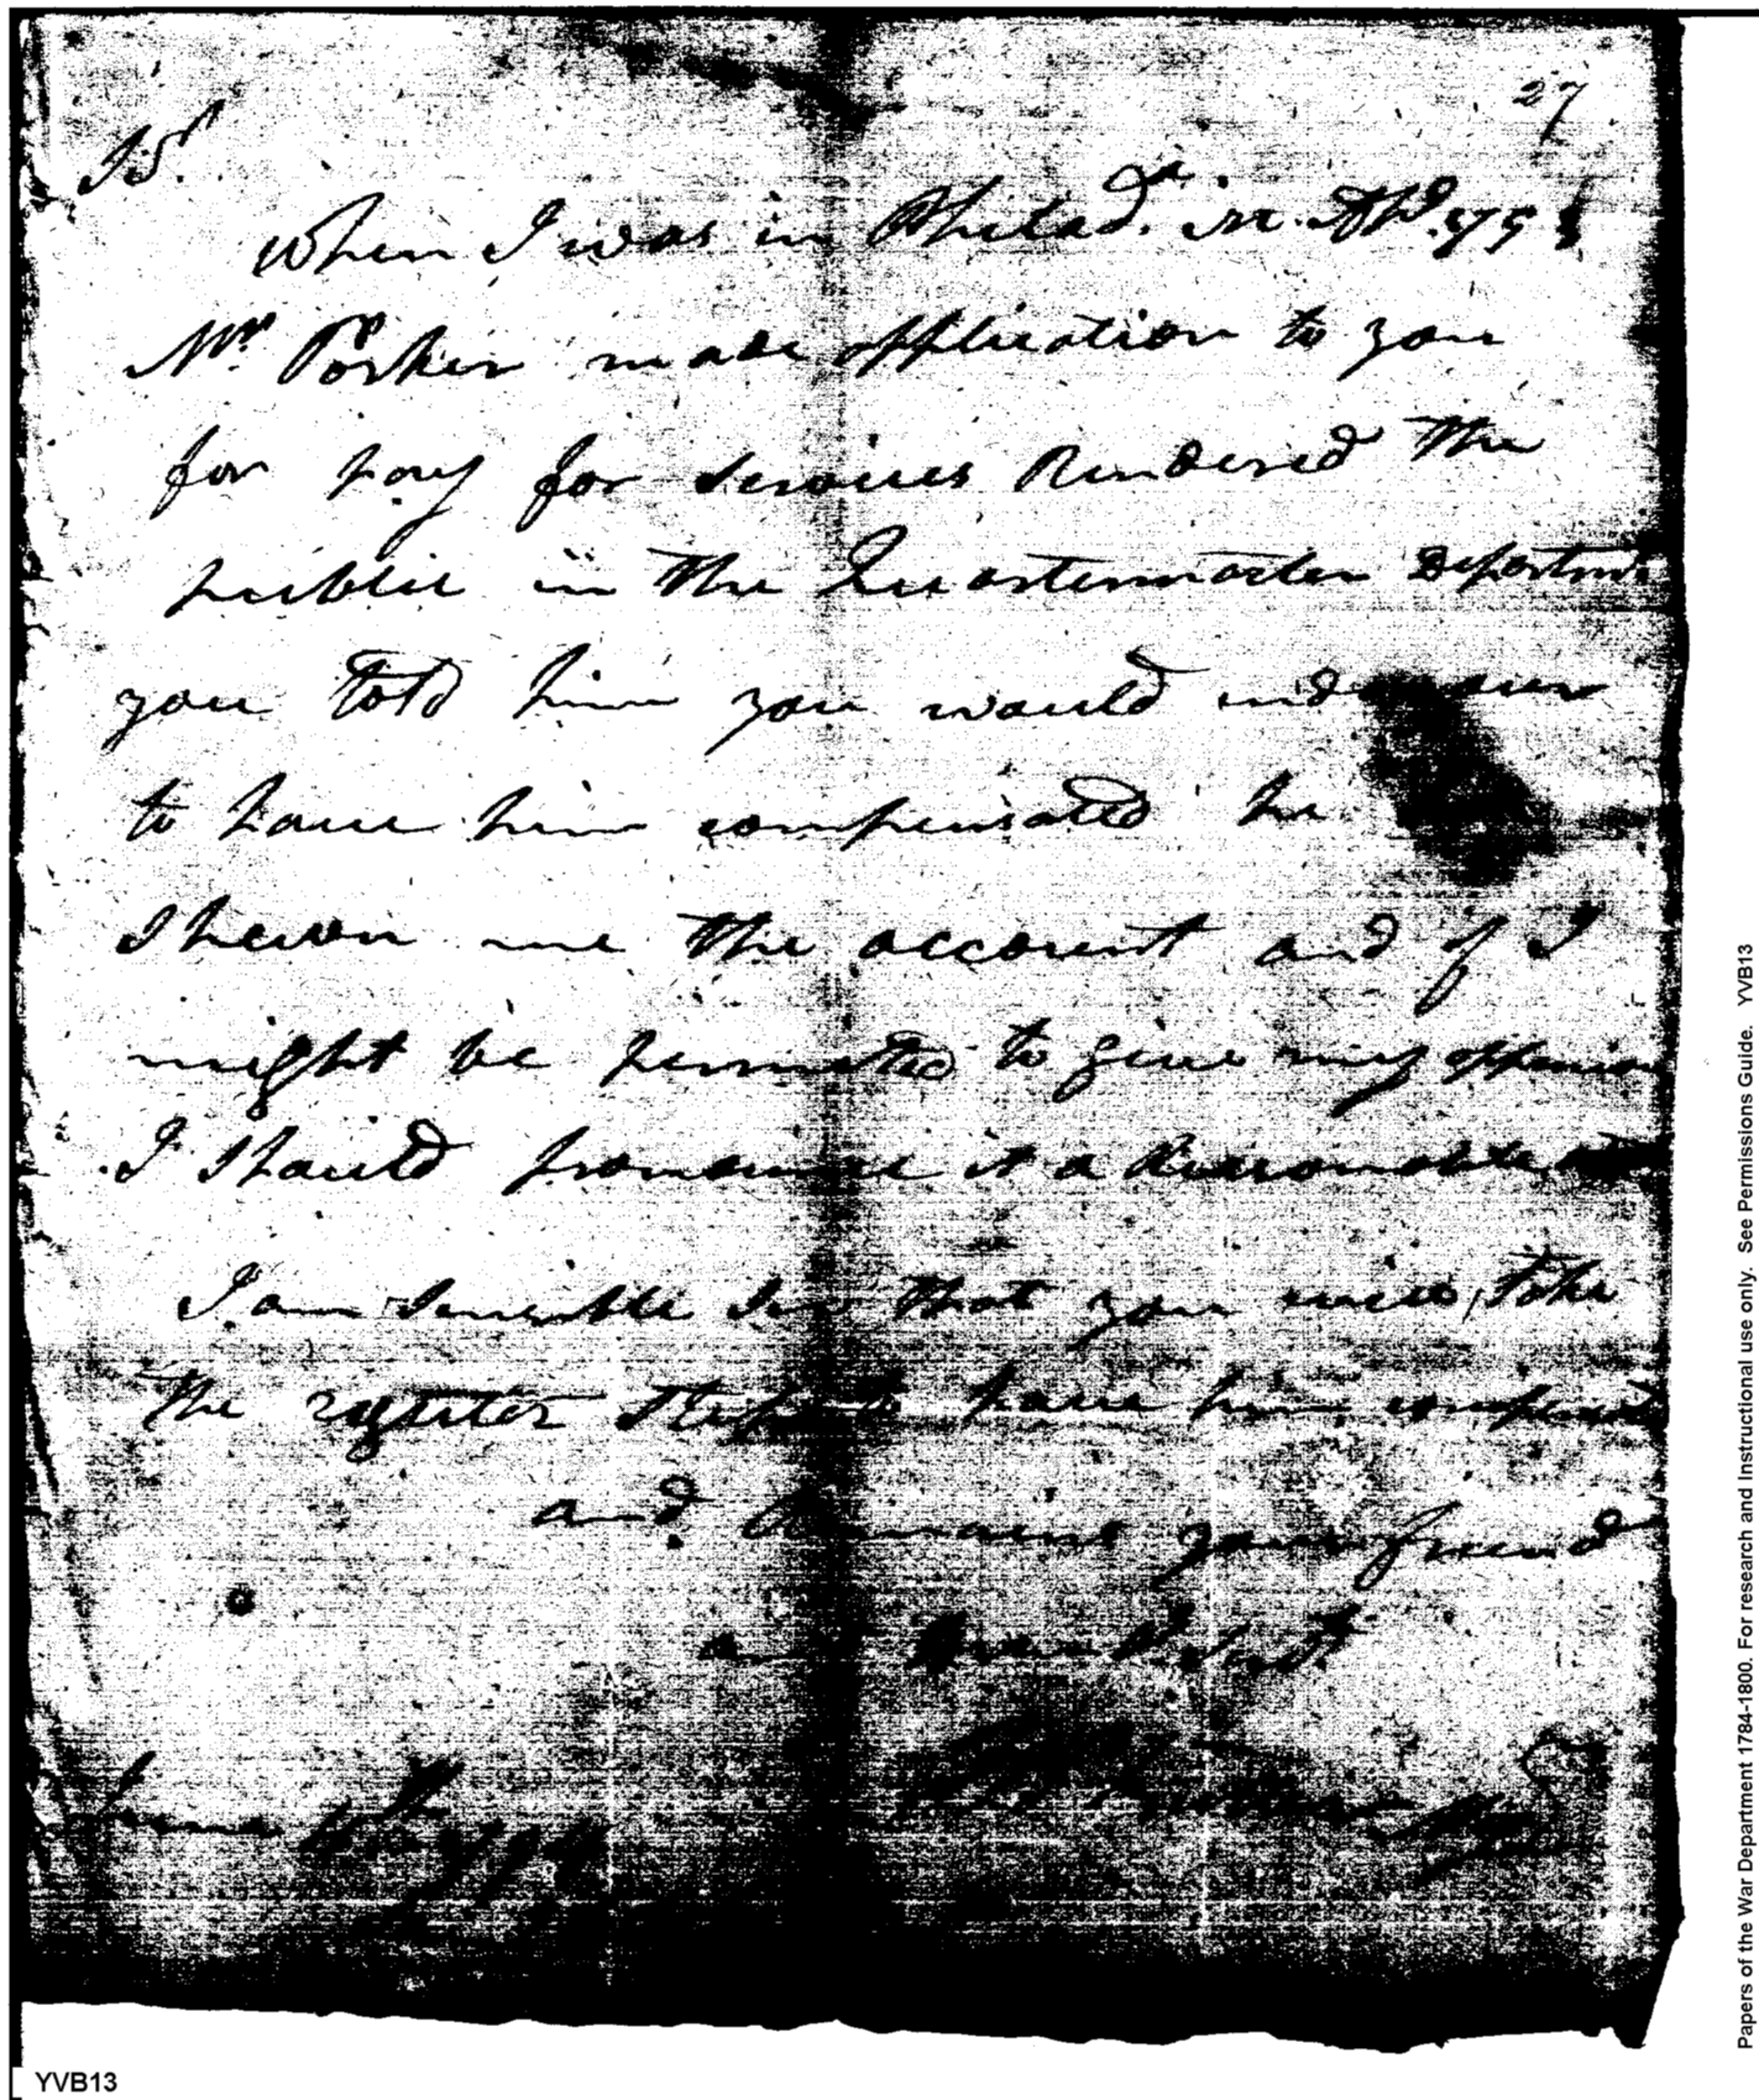 27
Sr
When I was in Philada. in Apl. 179
Mr. Porker made application to you
for pay for services Rendered the
public in the Quartermaster Department
you told him you would
to have him compensated he
Shewn me the account and if I
might be permitted to give my oppinion
I should pronounce it a Reasonable
I am sensible Sir that you will take
the steps to have him
and Remains your friend
and Hum Servt.
June
YVB13
Papers of the War Department 1784-1800. For research and Instructional use only. See Permissions Guide. YVB13